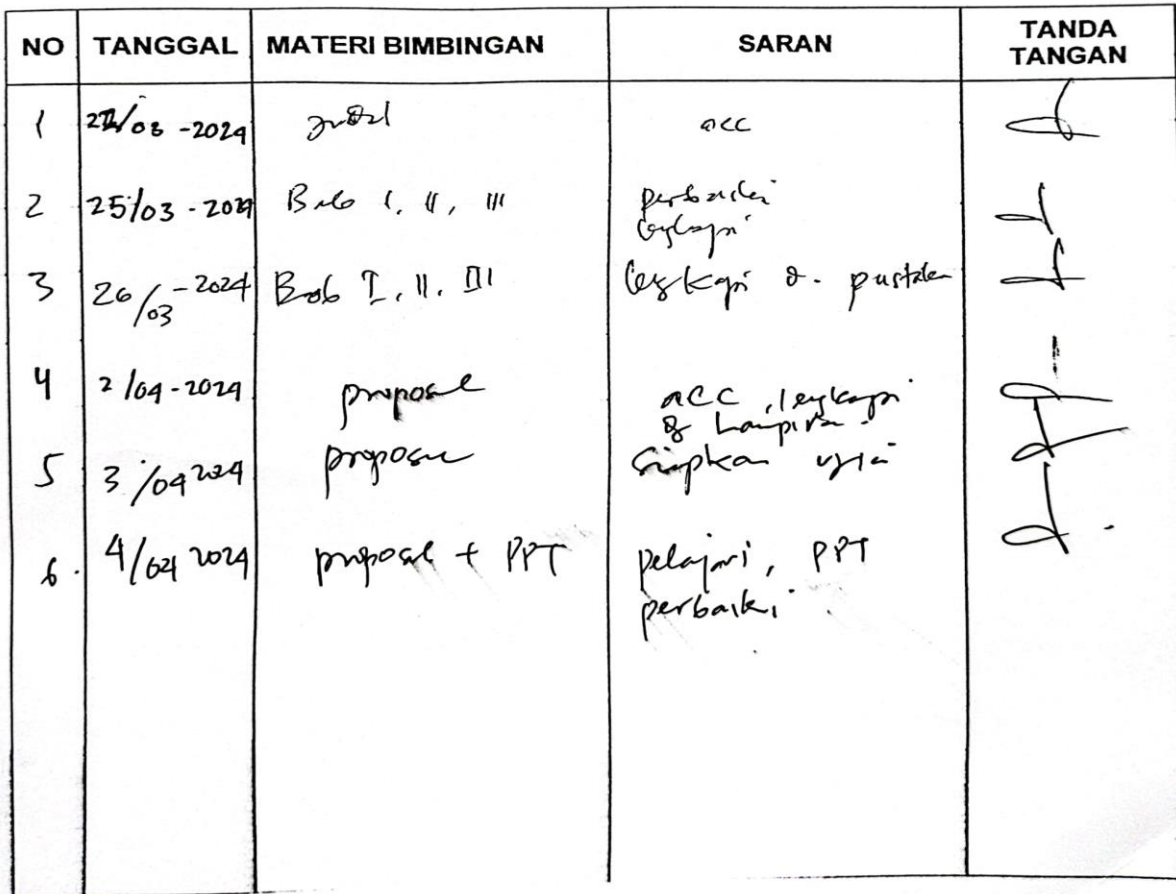 NO TANGGAL MATERI BIMBINGAN SARAN TANDA TANGAN
1 /03 -2024 judul acc
2 25/03 - 2024 Bab I, II, III perbaiki
lengkapi
3 26/03 - 2024 Bab I, II, III lengkapi d. pustaka
4 2/04 - 2024 proposal acc, lengkapi
lampiran
5 3/04 2024 proposal siapkan ujian
6. 4/04 2024 proposal + PPT pelajari, PPT
perbaiki